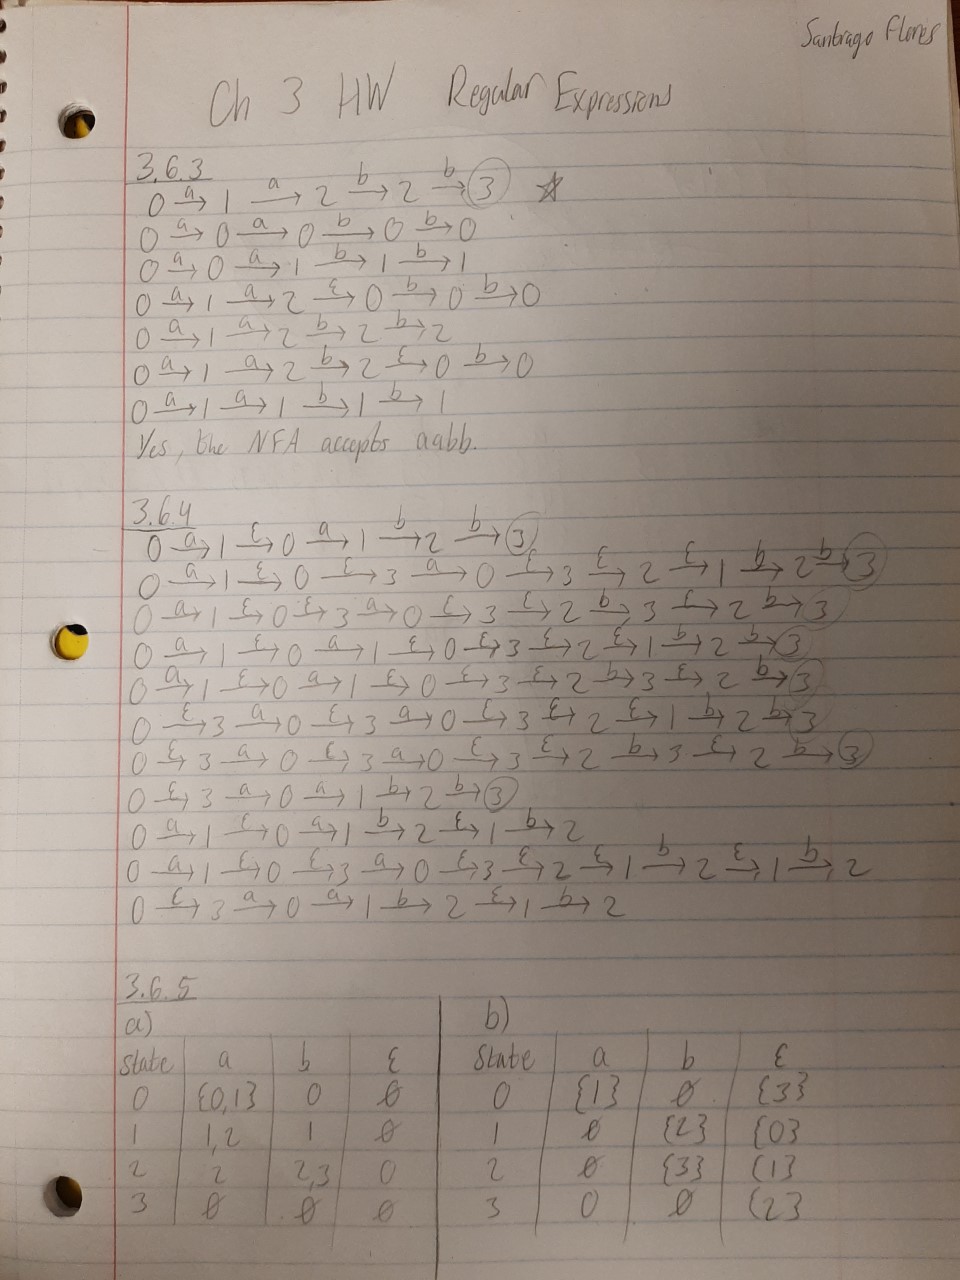 Santiago Flores
Ch 3 HW Regular Expressions
3.6.3
0 a→ 1 a→ 2 b→ 2 b→ 3 ☆
0 a→ 0 a→ 0 b→ 0 b→ 0
0 a→ 0 a→ 1 b→ 1 b→ 1
0 a→ 1 a→ 2 ε→ 0 b→ 0 b→ 0
0 a→ 1 a→ 2 b→ 2 b→ 2
0 a→ 1 a→ 2 b→ 2 ε→ 0 b→ 0
0 a→ 1 a→ 1 b→ 1 b→ 1
Yes, the NFA accepts aabb.
3.6.4
0 a→ 1 ε→ 0 a→ 1 b→ 2 b→ 3
0 a→ 1 ε→ 0 ε→ 3 a→ 0 ε→ 3 ε→ 2 ε→ 1 b→ 2 b→ 3
0 a→ 1 ε→ 0 ε→ 3 a→ 0 ε→ 3 ε→ 2 b→ 3 ε→ 2 b→ 3
0 a→ 1 ε→ 0 a→ 1 ε→ 0 ε→ 3 ε→ 2 ε→ 1 b→ 2 b→ 3
0 a→ 1 ε→ 0 a→ 1 ε→ 0 ε→ 3 ε→ 2 b→ 3 ε→ 2 b→ 3
0 ε→ 3 a→ 0 ε→ 3 a→ 0 ε→ 3 ε→ 2 ε→ 1 b→ 2 b→ 3
0 ε→ 3 a→ 0 ε→ 3 a→ 0 ε→ 3 ε→ 2 b→ 3 ε→ 2 b→ 3
0 ε→ 3 a→ 0 a→ 1 b→ 2 b→ 3
0 a→ 1 ε→ 0 a→ 1 b→ 2 ε→ 1 b→ 2
0 a→ 1 ε→ 0 ε→ 3 a→ 0 ε→ 3 ε→ 2 ε→ 1 b→ 2 ε→ 1 b→ 2
0 ε→ 3 a→ 0 a→ 1 b→ 2 ε→ 1 b→ 2
3.6.5
a)
State a b ε
0 {0,1} 0 ∅
1 1,2 1 ∅
2 2 2,3 0
3 ∅ ∅ ∅
b)
State a b ε
0 {1} ∅ {3}
1 ∅ {2} {0}
2 ∅ {3} {1}
3 0 ∅ {2}